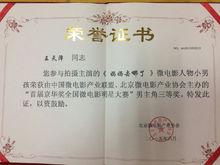 荣誉证书
同志
您参与拍摄主演的《妈妈去哪了》微电影人物小男
孩荣获由中国微电影产业联盟、北京微电影产业协会主办的
“首届京华奖全国微电影明星大赛”男主角三等奖，特发此
证，以资鼓励。
北京微电影产业协会